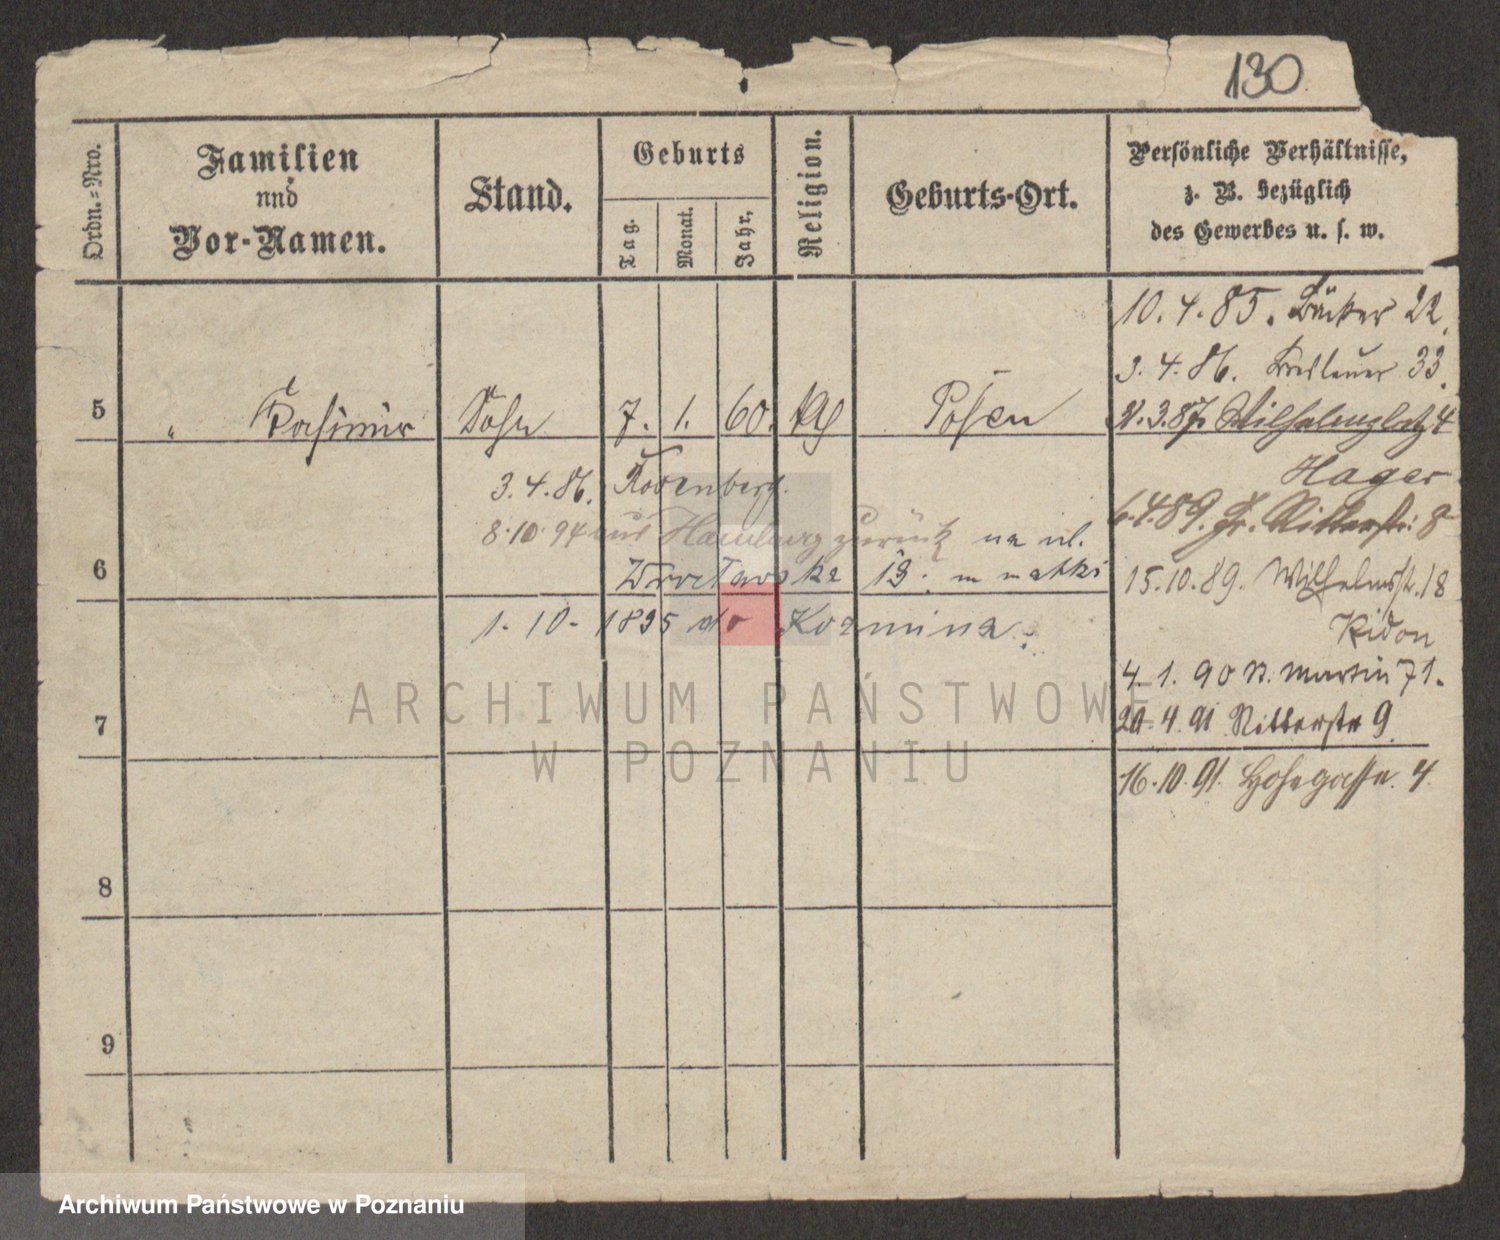 130
Ordn.=Nro.
Familien
und
Vor-Namen.
Stand.
Geburts
Tag.
Monat.
Jahr.
Religion.
Geburts-Ort.
Persönliche Verhältnisse,
z. B. bezüglich
des Gewerbes u. s. w.
10. 4. 85. Bäcker 22.
3. 4. 86. Breslauer 33.
5 " Casimir Sohn 7. 1. 60. Posen
3.87. Wilhelmsplatz 4
Hager
3. 4. 86. Rosenberg.
6.4.89. Gr. Ritterstr: 8
8.10.94 aus Hamburg zurück na ul.
6 Wrocławska 13. m matki
15.10.89. Wilhelmstr. 18
1. 10. 1895 do Kozmina.
Kidon
4. 1. 90 St. Martin 71.
7
20.4.91 Ritterstr 9.
16.10.91. Hohegasse. 4.
8
9
ARCHIWUM PAŃSTWOWE
W POZNANIU
Archiwum Państwowe w Poznaniu